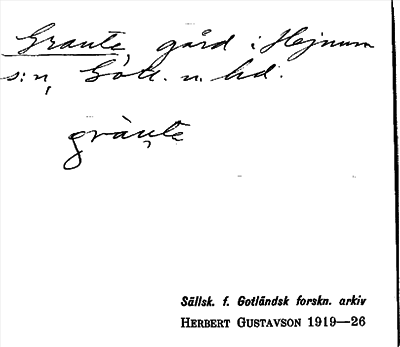 Graute, gård i Hejnum
s:n, Gotl. n. hd.
gràu̯te
Sällsk. f. Gotländsk forskn. arkiv
HERBERT GUSTAVSON 1919—26